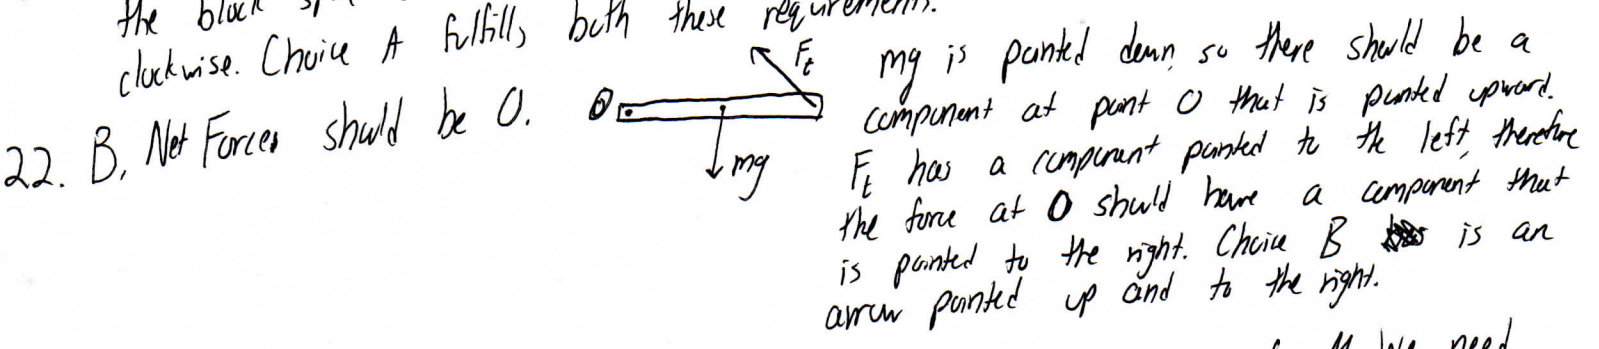 the block
clockwise. Choice A fulfills both these requirements.
22. B. Net Forces should be 0.
O
Ft
mg
mg is pointed down, so there should be a
component at point O that is pointed upward.
Ft has a component pointed to the left, therefore
the force at O should have a component that
is pointed to the right. Choice B is an
arrow pointed up and to the right.
We need